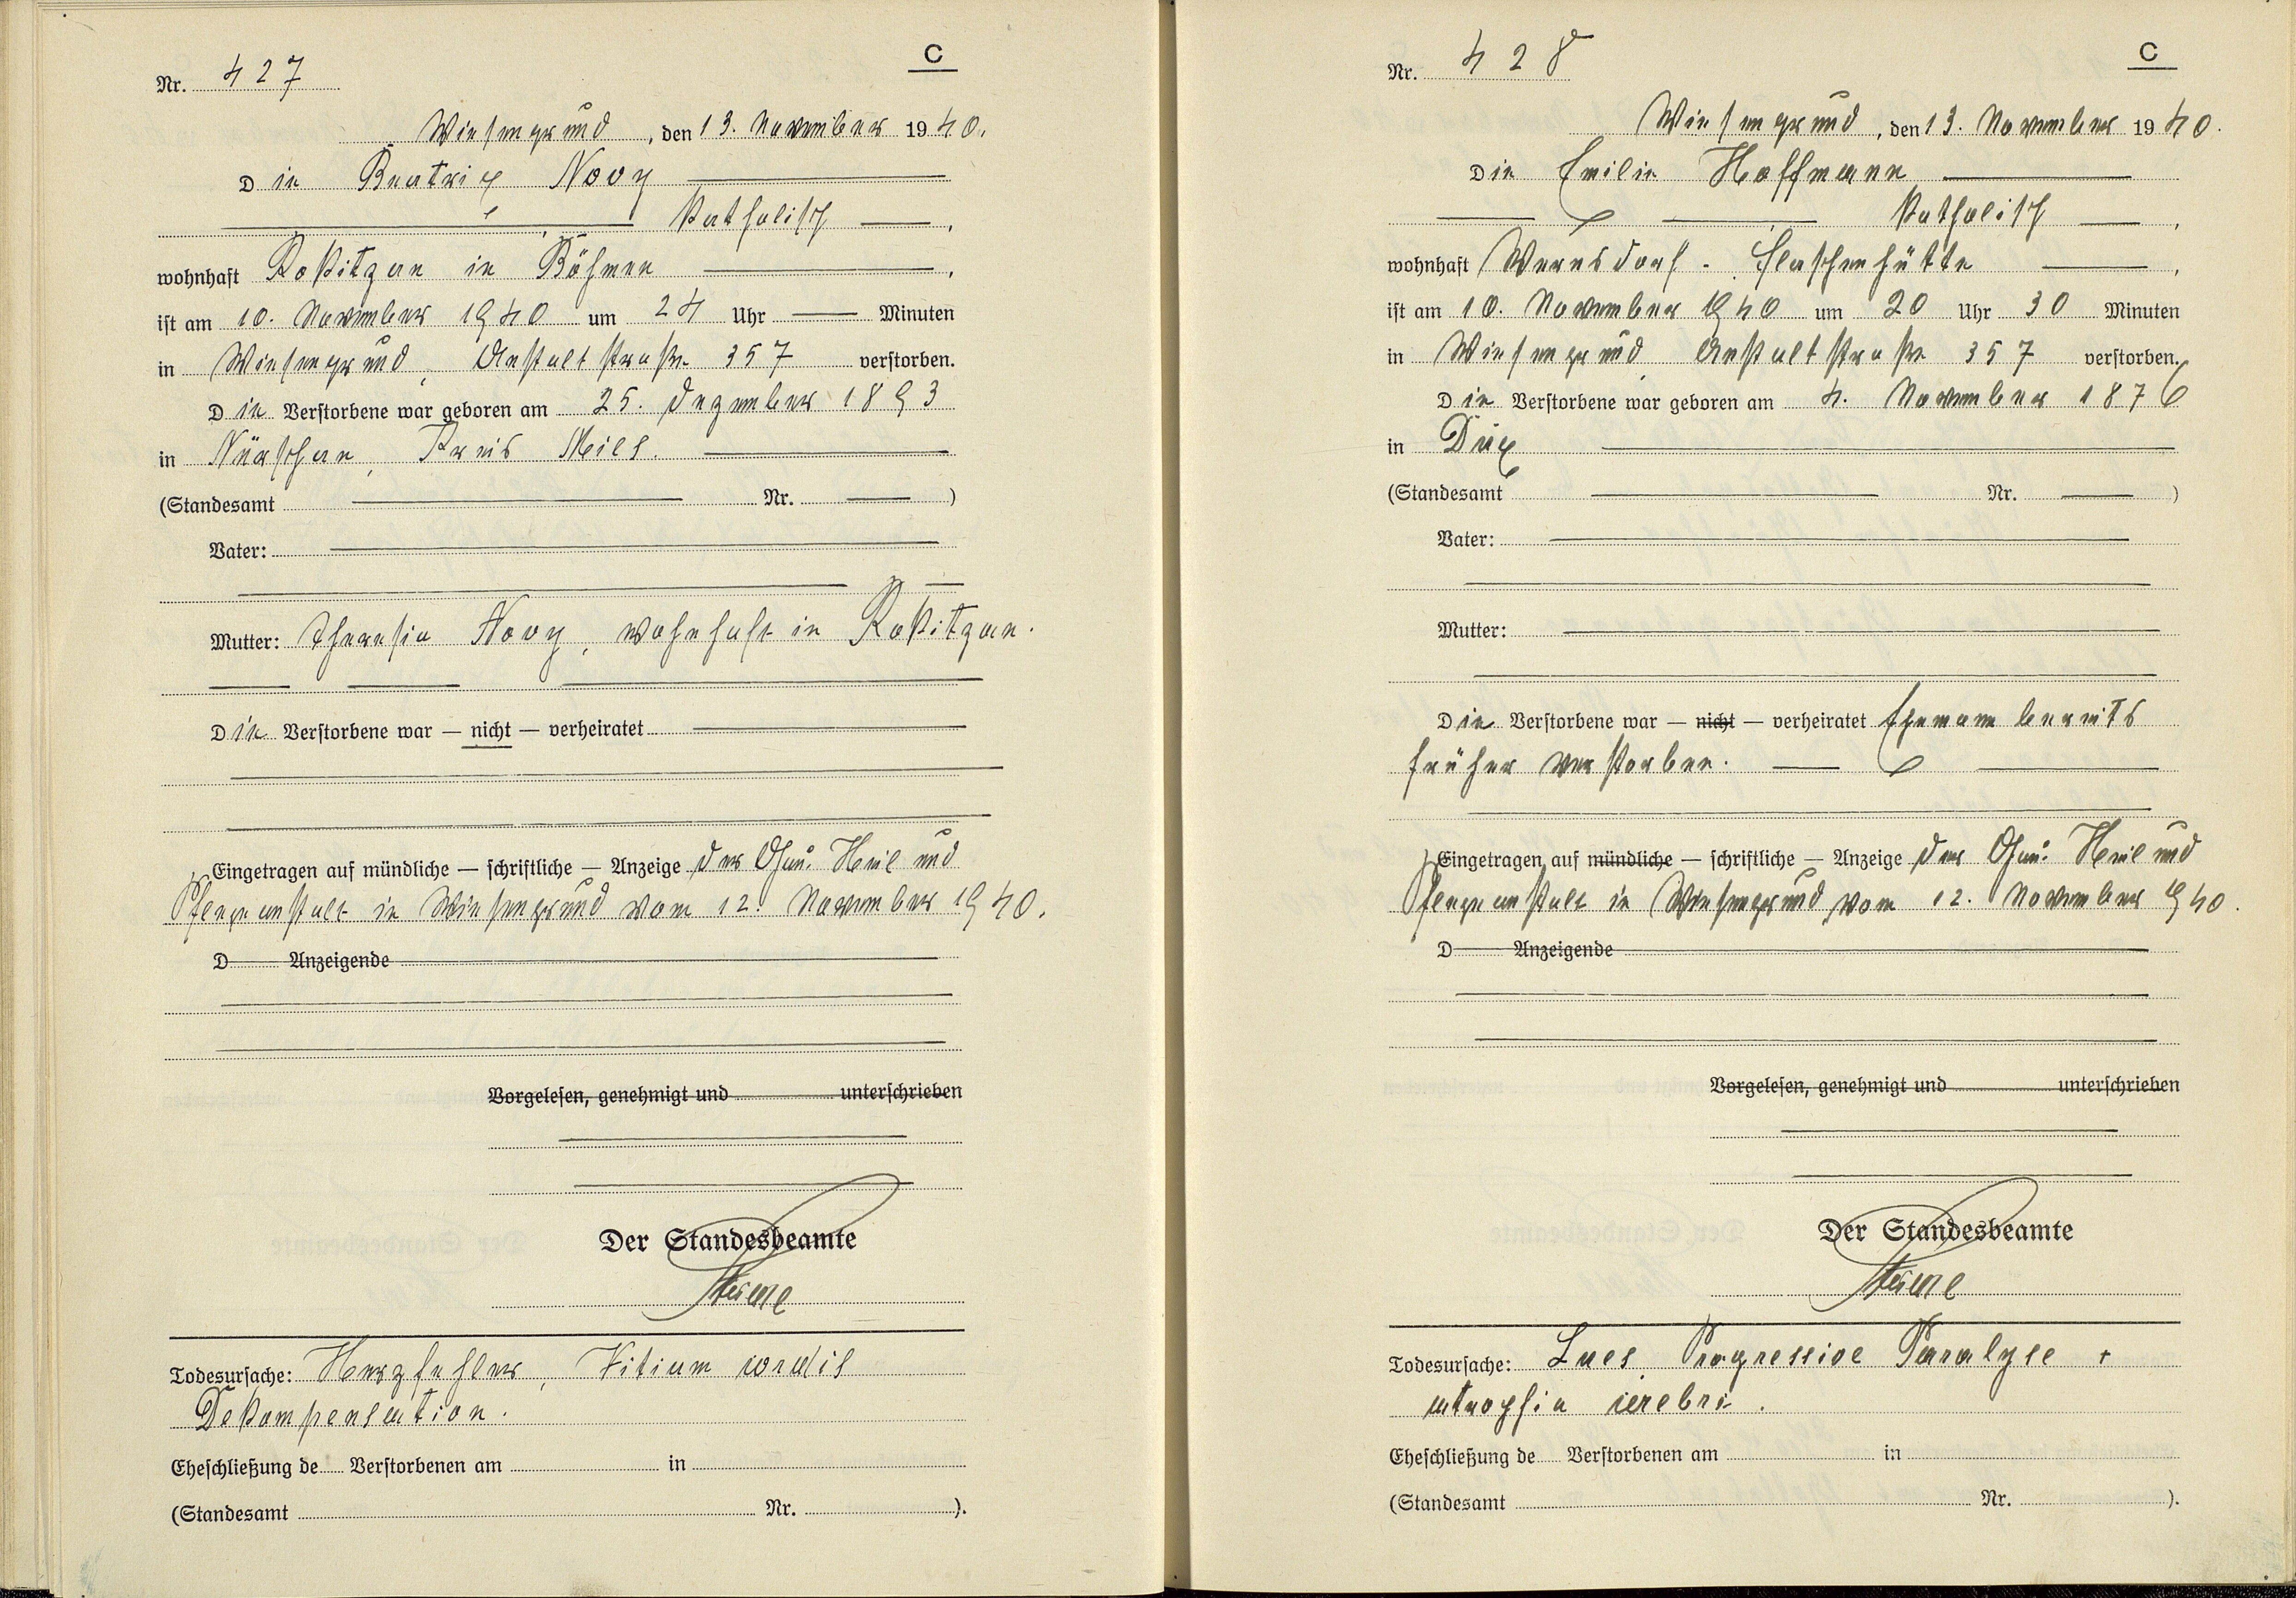 C
Nr. 427
Wiesengrund, den 13. November 1940.
Die Beatrix Novy
katholisch,
wohnhaft Rokitzan in Böhmen,
ist am 10. November 1940 um 24 Uhr — Minuten
in Wiesengrund, Anstaltstraße 357 verstorben.
Die Verstorbene war geboren am 25. Dezember 1893
in Nürschan, Kreis Mies.
(Standesamt — Nr. — )
Vater: —
Mutter: Theresia Novy, wohnhaft in Rokitzan.
Die Verstorbene war — nicht — verheiratet
Eingetragen auf mündliche — schriftliche — Anzeige der Gau. Heil und
Pflegeanstalt in Wiesengrund vom 12. November 1940.
D Anzeigende
Vorgelesen, genehmigt und unterschrieben
Der Standesbeamte
Todesursache: Herzfehler, Vitium cordis
Dekompensation.
Eheschließung de Verstorbenen am in
(Standesamt Nr. ).
C
Nr. 428
Wiesengrund, den 13. November 1940.
Die Emilie Hoffmann
katholisch,
wohnhaft Wernsdorf - Flaschenhütte,
ist am 10. November 1940 um 20 Uhr 30 Minuten
in Wiesengrund Anstaltstraße 357 verstorben.
Die Verstorbene war geboren am 4. November 1876
in Dux
(Standesamt — Nr. — )
Vater: —
Mutter: —
Die Verstorbene war — nicht — verheiratet Ehemann bereits
früher verstorben.
Eingetragen auf mündliche — schriftliche — Anzeige der Gau. Heil und
Pflegeanstalt in Wiesengrund vom 12. November 1940.
D Anzeigende
Vorgelesen, genehmigt und unterschrieben
Der Standesbeamte
Todesursache: Lues, Progressive Paralyse +
atrophia cerebri.
Eheschließung de Verstorbenen am in
(Standesamt Nr. ).